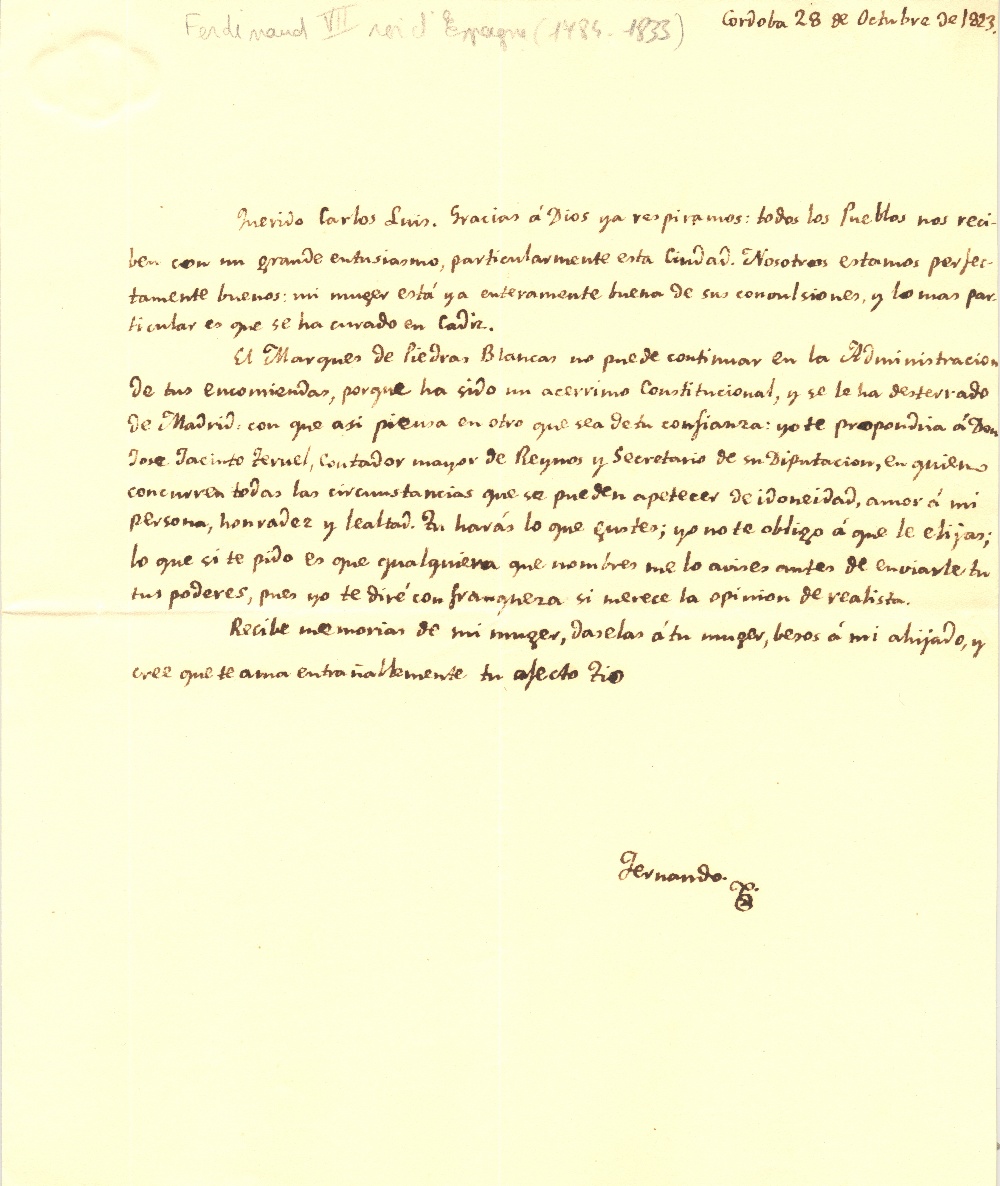 Ferdinand VII roi d'Espagne (1784-1833)
Cordoba 28 de Octubre de 1823.
Querido Carlos Luis. Gracias á Dios ya respiramos: todos los Pueblos nos reci-
ben con un grande entusiasmo, particularmente esta Ciudad. Nosotros estamos perfec-
tamente buenos: mi muger está ya enteramente buena de sus convulsiones, y lo mas par-
ticular es que se ha curado en Cadiz.
El Marques de Piedras Blancas no puede continuar en la Administracion
de tus encomiendas, porque ha sido un acerrimo Constitucional, y se le ha desterrado
de Madrid: con que asi piensa en otro que sea de tu confianza: yo te propondria á Don
Jose Jacinto Teruel, Contador mayor de Reynos y Secretario de su Diputacion, en quien
concurren todas las circunstancias que se pueden apetecer de idoneidad, amor á mi
persona, honradez y lealtad. Tu harás lo que gustes; yo no te obligo á que le elijas;
lo que si te pido es que qualquiera que nombres me lo avises antes de enviarle tu
tus poderes, pues yo te diré con franqueza si merece la opinion de realista.
Recibe memorias de mi muger, daselas á tu muger, besos á mi ahijado, y
cree que te ama entrañablemente tu afecto Tio
Fernando.